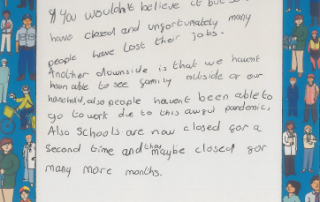 If you wouldn't believe it but
have closed and unfortunately many
people have lost their jobs.
Another downside is that we havent
been able to see family outside or our
household, also people havent been able to
go to work due to this awful pandemic.
Also schools are now closed for a
second time and they maybe closed for
many more months.